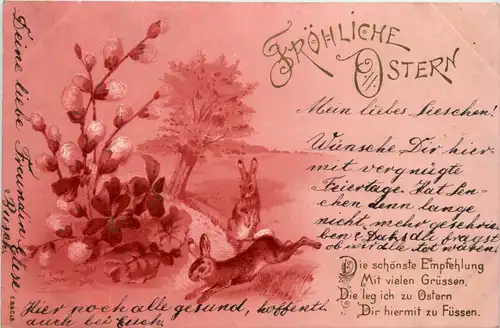 Fröhliche
Ostern
Mein liebes Lieschen!
Wünsche Dir hier-
mit vergnügte
Feiertage. Hat Len-
chen denn lange
nicht mehr geschrie-
ben? Dass du fragst
ob wir alle tot wären.
Die schönste Empfehlung
Mit vielen Grüssen,
Die leg ich zu Ostern
Dir hiermit zu Füssen.
Hier noch alle gesund, hoffentl.
auch bei Euch.
Deine liebe Freundin Else